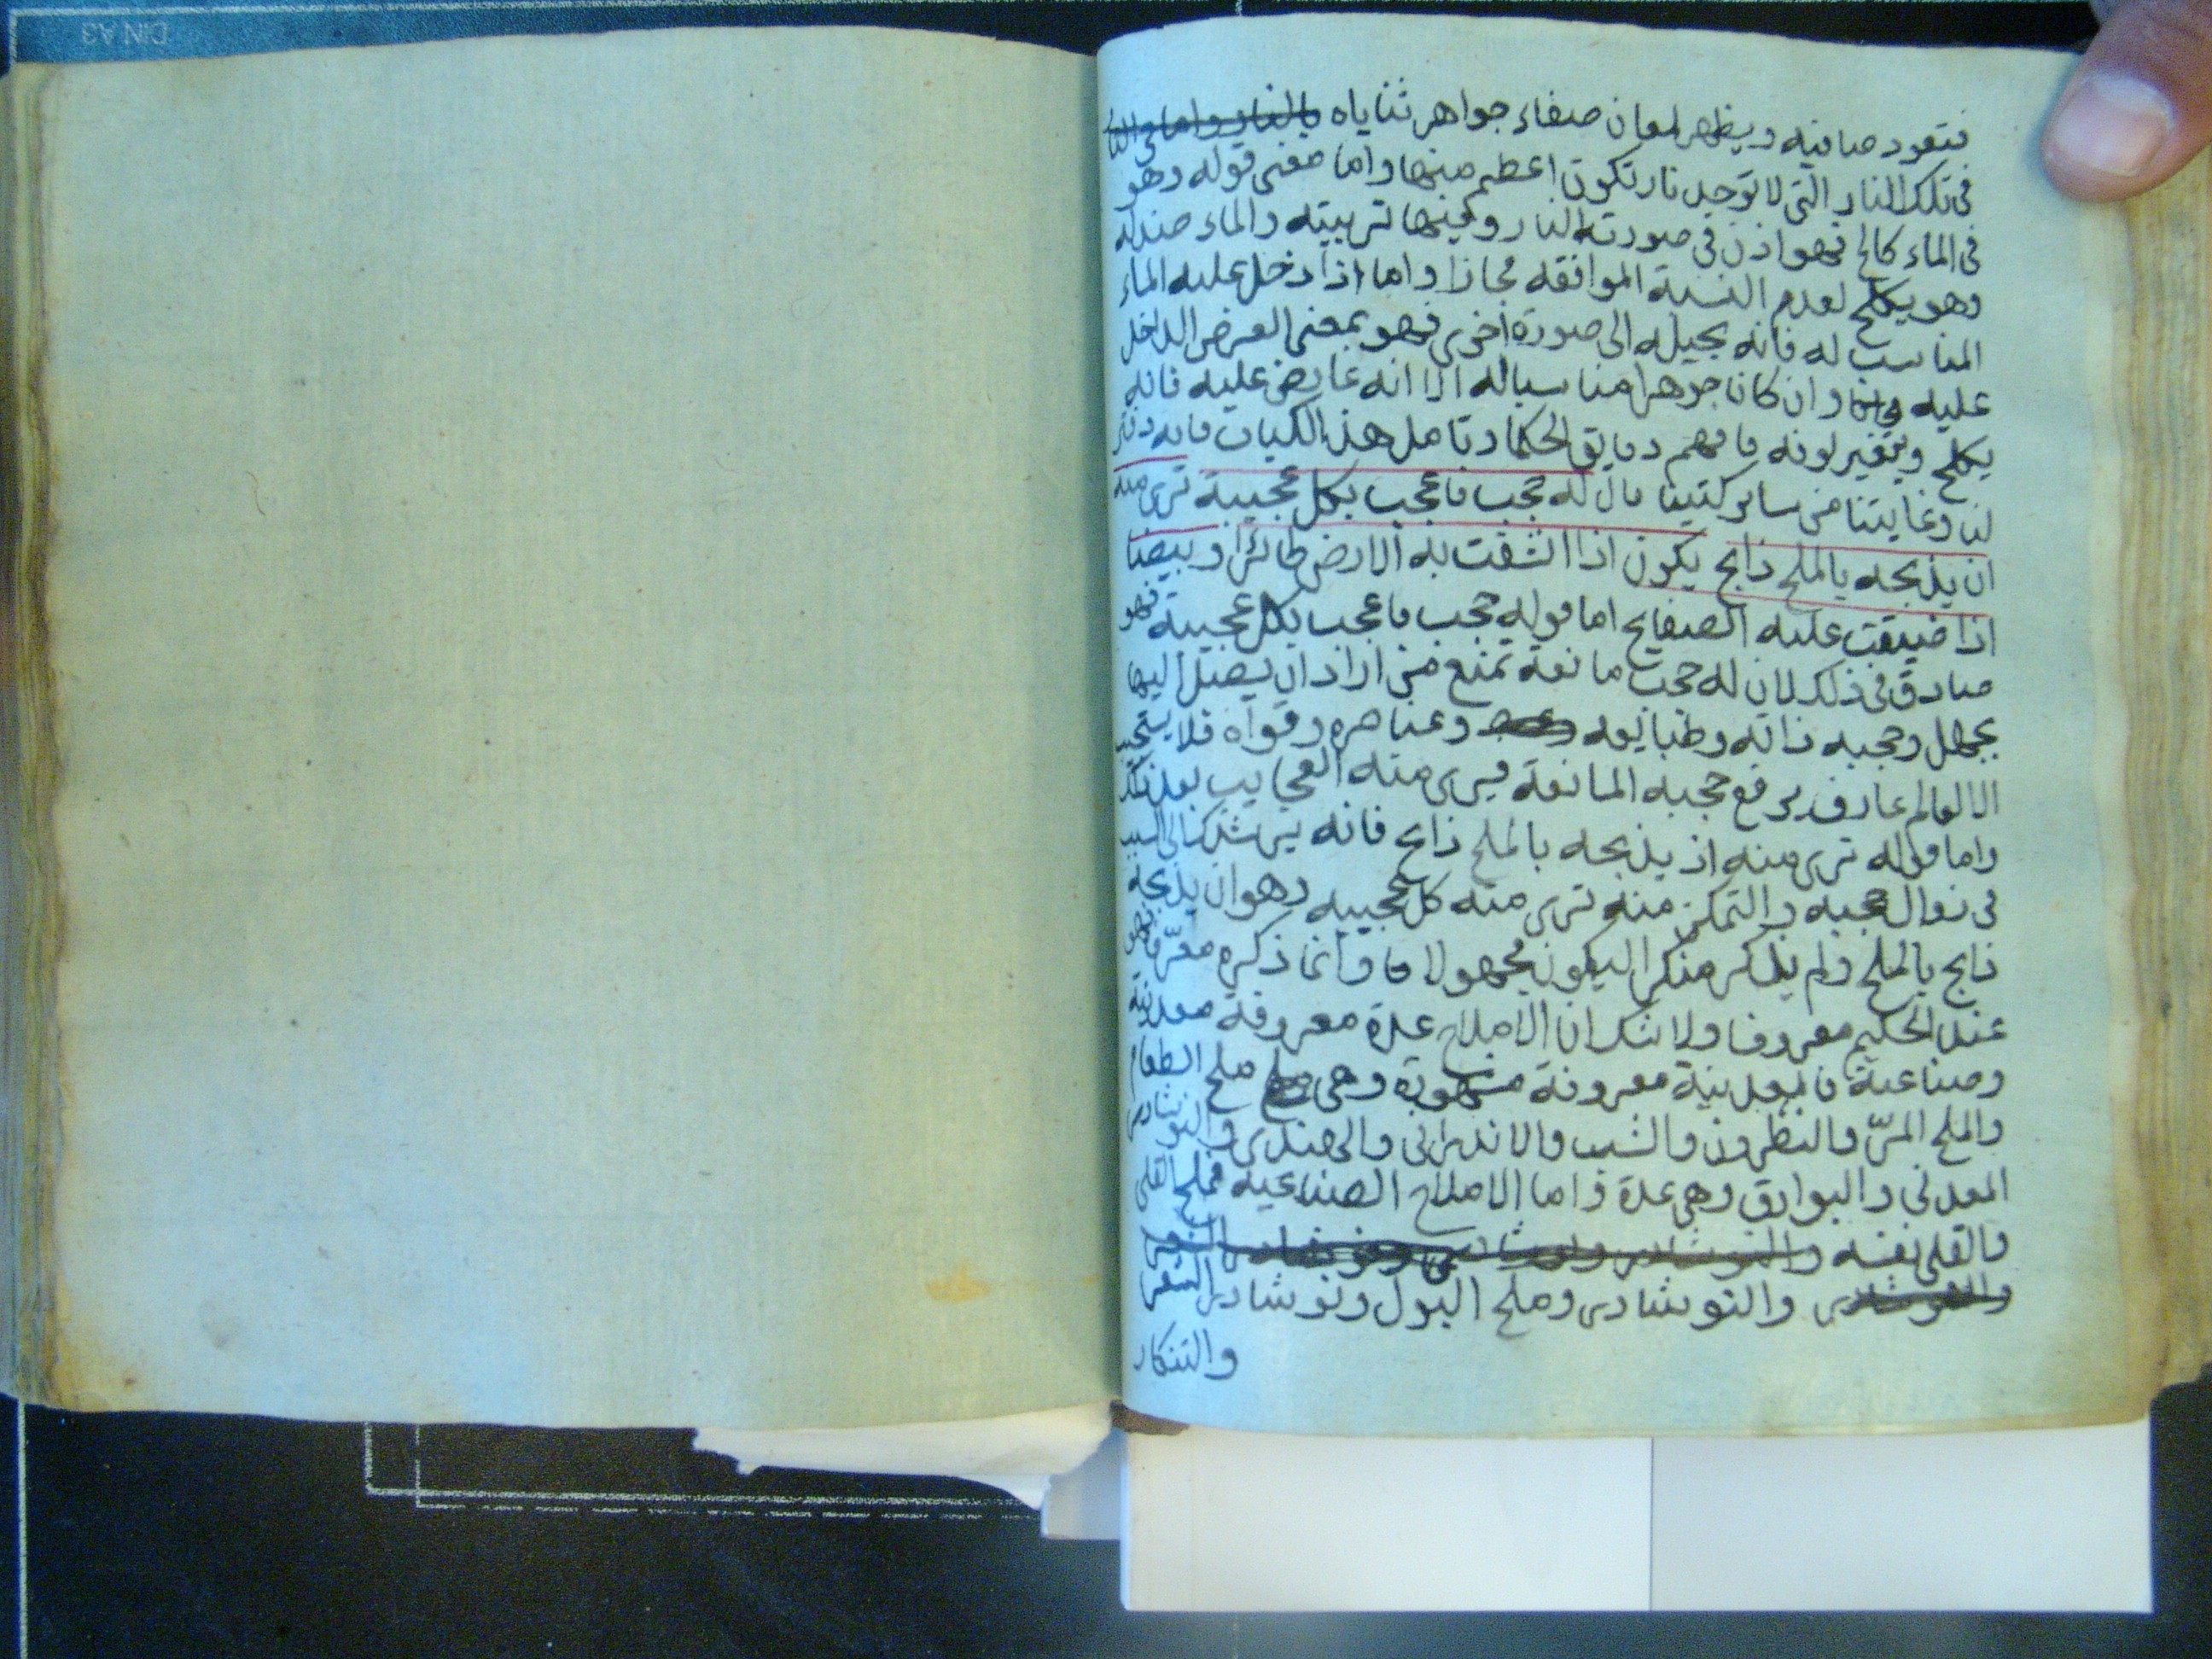 فتعود صافيه ويظهر لمعان صفاء جواهر ثناياه بالنار واما في النا
في تلك النار التي لا توجد نار تكون اعظم منها واما معنى قوله وهو
في الماء كالح فهو اذن في صورته النار وفيها تربيته والماء ضد له
وهو يكلح لعدم النسبة الموافقه مجازا واما اذا دخل عليه الماء
المناسب له فانه يحيله الى صورة اخرى فهو بمعنى العرض الداخل
عليه وان كان جوهرا مناسبا له الا انه عارض عليه فانه
يكلح ويتغير لونه فافهم دقايق الحكما وتامل هذا الكتاب فانه
لنا وغايتنا من ساير كتبنا قال له حجب فاعجب بكل عجيبة ترى منه
ان يذبحه بالملح ذابح يكون اذا انشقت به الارض طائرا وبيضا
اذا ضيقت عليه الصفايح اما قوله حجب فاعجب بكل عجيبة فهو
صادق في ذلك لان له حجب مانعة تمنع من اراد ان يصل اليها
بجهل وحجبه ذاته وطبايعه وعناصره وقواه فلا يستجيب
الا لعالم عارف يرفع حجبه المانعة فيرى منه العجايب بعد ذلك
واما قوله ترى منه اذ يذبحه بالملح ذابح فانه يرشدك الى السبب
في زوال حجبه والتمكن منه ترى منه كل عجيبه وهو ان يذبحه
ذابح بالملح ولم يذكر منكرا ليكون مجهولا وانما ذكره معرفا فهو
عند الحكيم معروفا ولا شك ان الاملاح عدة معروفة معدنية
وصناعية فالمعدنية معروفة مشهورة وهي ملح الطعام
والملح المر والنطرون والشب والاندراني والهندي والنوشادر
المعدني والبوارق وهي عدة واما الاملاح الصناعيه فملح القلي
والقلي نفسه والنوشادر
والنوشادر والنوشادر وملح البول ونوشادر الشعر
والتنكار
DIN A3